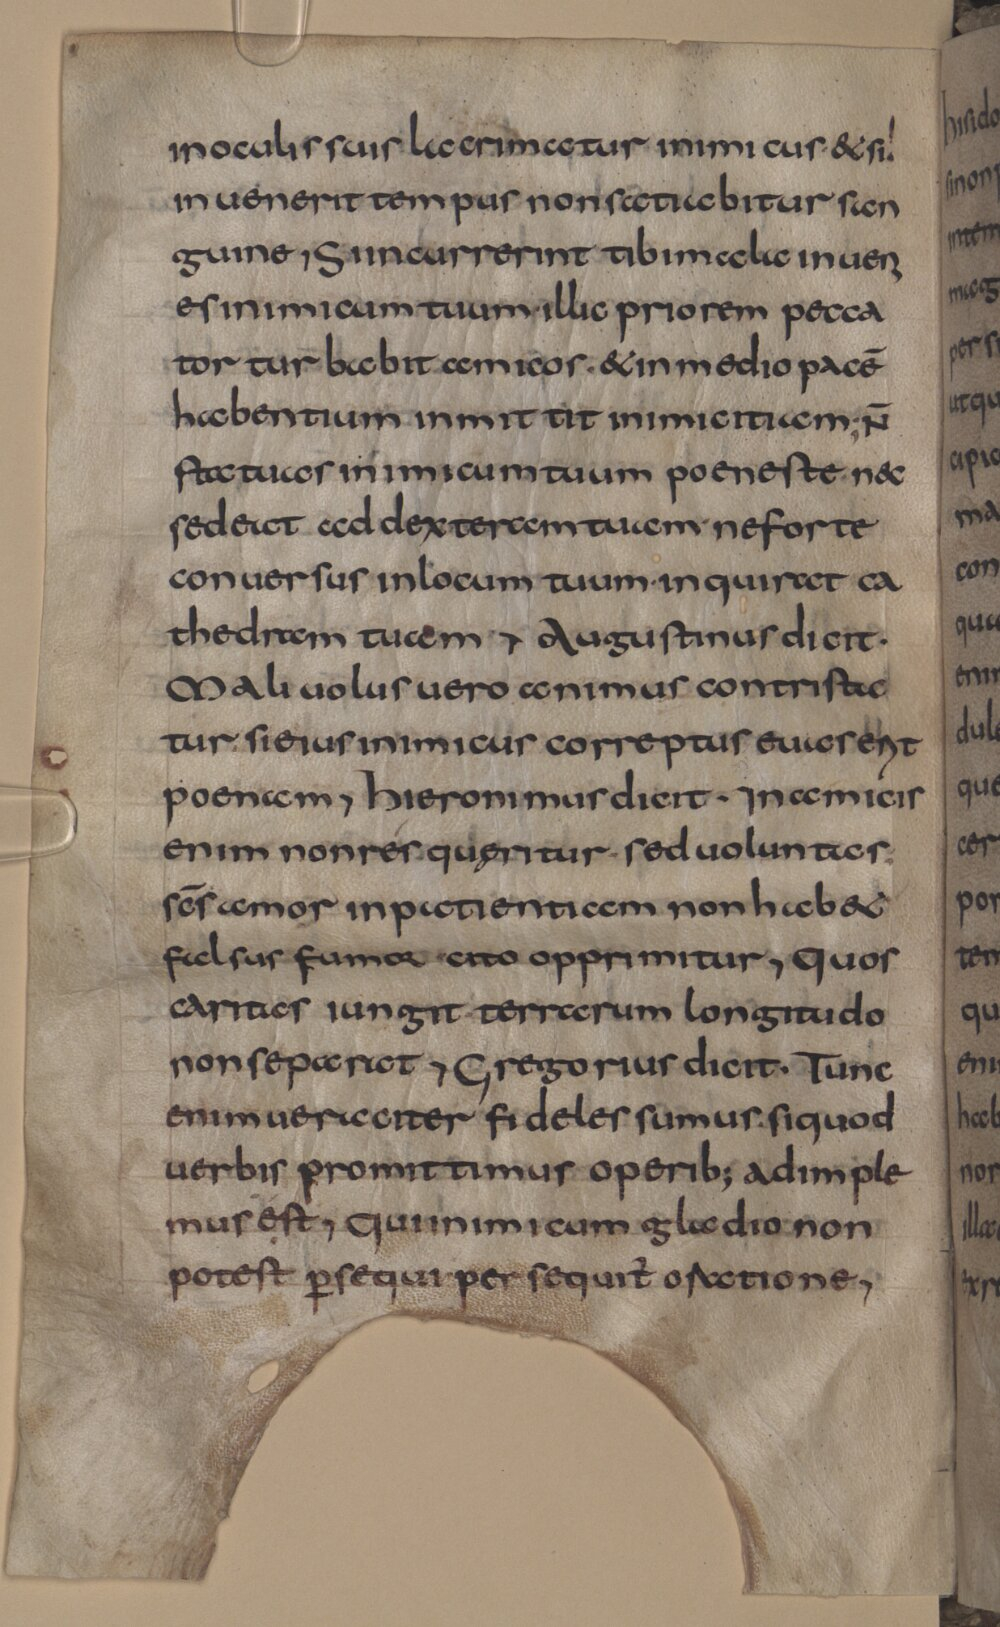 in oculis suis lacrimatur inimicus & si
invenerit tempus non satiabitur san
guine, Si incurrerint tibi mala inveni
es inimicum tuum illic priorem pecca
tor turbabit amicos · & in medio pacē
habentium inmittit inimicitiam, N̄
statuas inimicum tuum poene ste nec
sedeat ad dexteram tuam ne forte
conversus in locum tuum · inquirat ca
thedram tuam, Augustinus dicit ·
Malivolus vero animus contrista
tur · si eius inimicus correptus evaserit
poenam, hieronimus dicit · In amicis
enim non res queritur · sed voluntas ·
scs amor inpatientiam non hab&
falsus fumor cito opprimitur, Quos
caritas iungit · terrarum longitudo
non separat, Gregorius dicit · Tunc
enim veraciter fideles sumus · si quod
verbis promittimus operib; adimple
mus est, Qui inimicum gladio non
potest ꝑsequi persequit̃ oratione,
hisido
sinon
intem
mag
per si
utqu
capio
ma
con
qua
enim
dul
que
cer
por
tem
qu
eni
hab
nor
illa